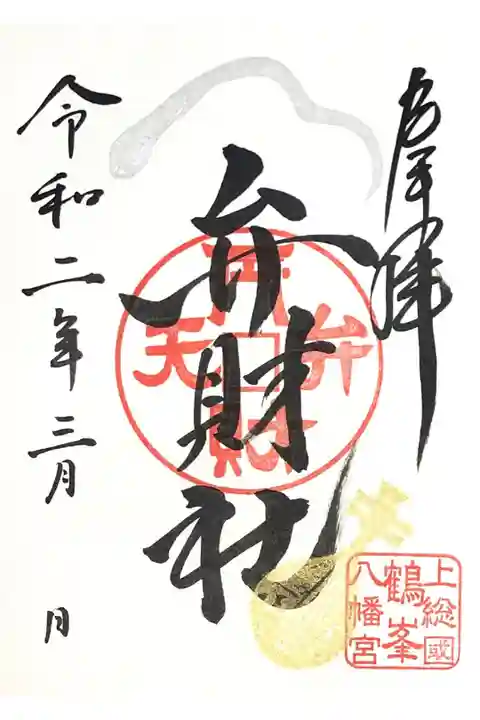 弁財社
令和二年三月 日
弁
財
天
上総國
鶴峯
八幡宮